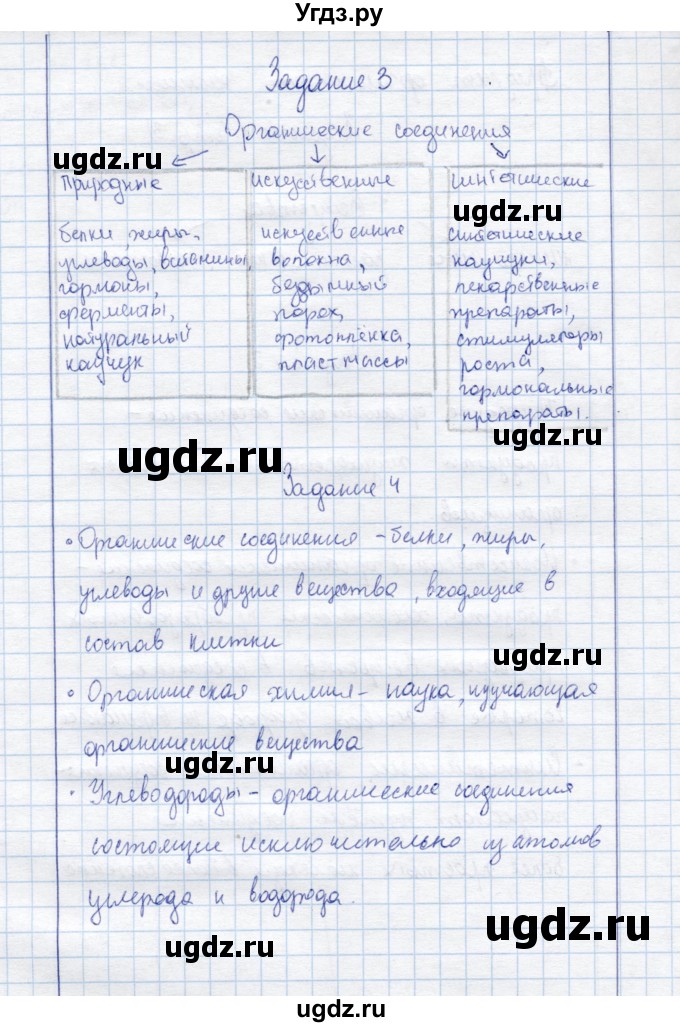 Угдз.ру
Задание 3
Органические соединения
Природные
белки, жиры,
углеводы, витамины,
гормоны,
ферменты,
натуральный
каучук
искусственные
искусственные
волокна,
бездымный
порох,
фотоплёнка,
пластмассы
синтетические
синтетические
каучуки,
лекарственные
препараты,
стимуляторы
роста,
гормональные
препараты.
Задание 4
• Органические соединения - белки, жиры,
углеводы и другие вещества, входящие в
состав клетки
• Органическая химия - наука, изучающая
органические вещества
• Углеводороды - органические соединения
состоящие исключительно из атомов
углерода и водорода.
ugdz.ru
ugdz.ru
ugdz.ru
ugdz.ru
ugdz.ru
ugdz.ru
ugdz.ru
ugdz.ru
ugdz.ru
ugdz.ru
ugdz.ru